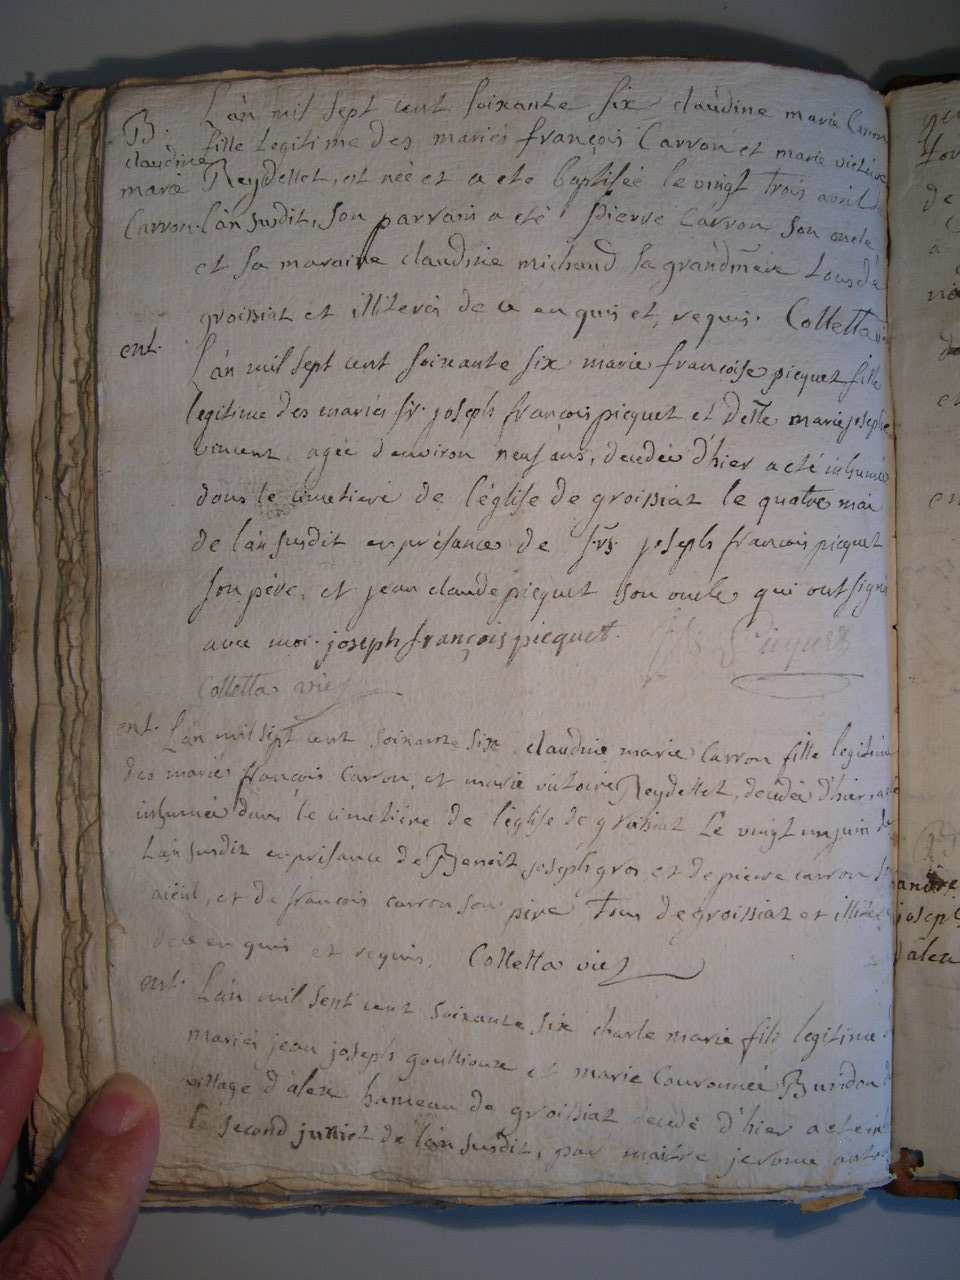 L'an mil sept cent soixante six claudine marie Carron
B. claudine marie Carron.
fille legitime des mariés françois Carron et marie victoire
Reydellet, est néé et a eté baptiséé le vingt trois avril
l'an susdit, son parrain a eté pierre Carron son oncle
et sa maraine claudine michaud sa grandmere tous de
groissiat et illiterés de ce enquis et requis. Colletta
ent. L'an mil sept cent soixante six marie françoise picquet fille
legitime des mariés sr. joseph françois picquet et delle marie josephe
vincent, agéé d'environ neuf ans, decedéé d'hier a eté inhuméé
dans le cimetiere de l'église de groissiat le quatre mai
de l'an susdit en présance de srs. joseph françois picquet
son pere, et jean claude picquet son oncle, qui ont signé
avec moi. joseph françois picquet. Picquet
Colletta vic
ent. L'an mil sept cent soixante six claudine marie Carron fille legitime
des mariés françois Carron, et marie victoire Reydellet, decedéé d'hier, a eté
inhuméé dans le cimetiére de l'église de groissiat le vingt un juin de
l'an susdit en présance de Benoit joseph gros, et de pierre carron
aieul, et de françois carron son pere tous de groissiat et illiterés
de ce enquis et requis. Colletta vic
ent. L'an mil sept cent soixante six charle marie fils legitime
mariés jean joseph gouilloux et marie Couronnéé Burdon
village d'alex hameau de groissiat decedé d'hier a eté in
le second juillet de l'an susdit, par maitre jerome